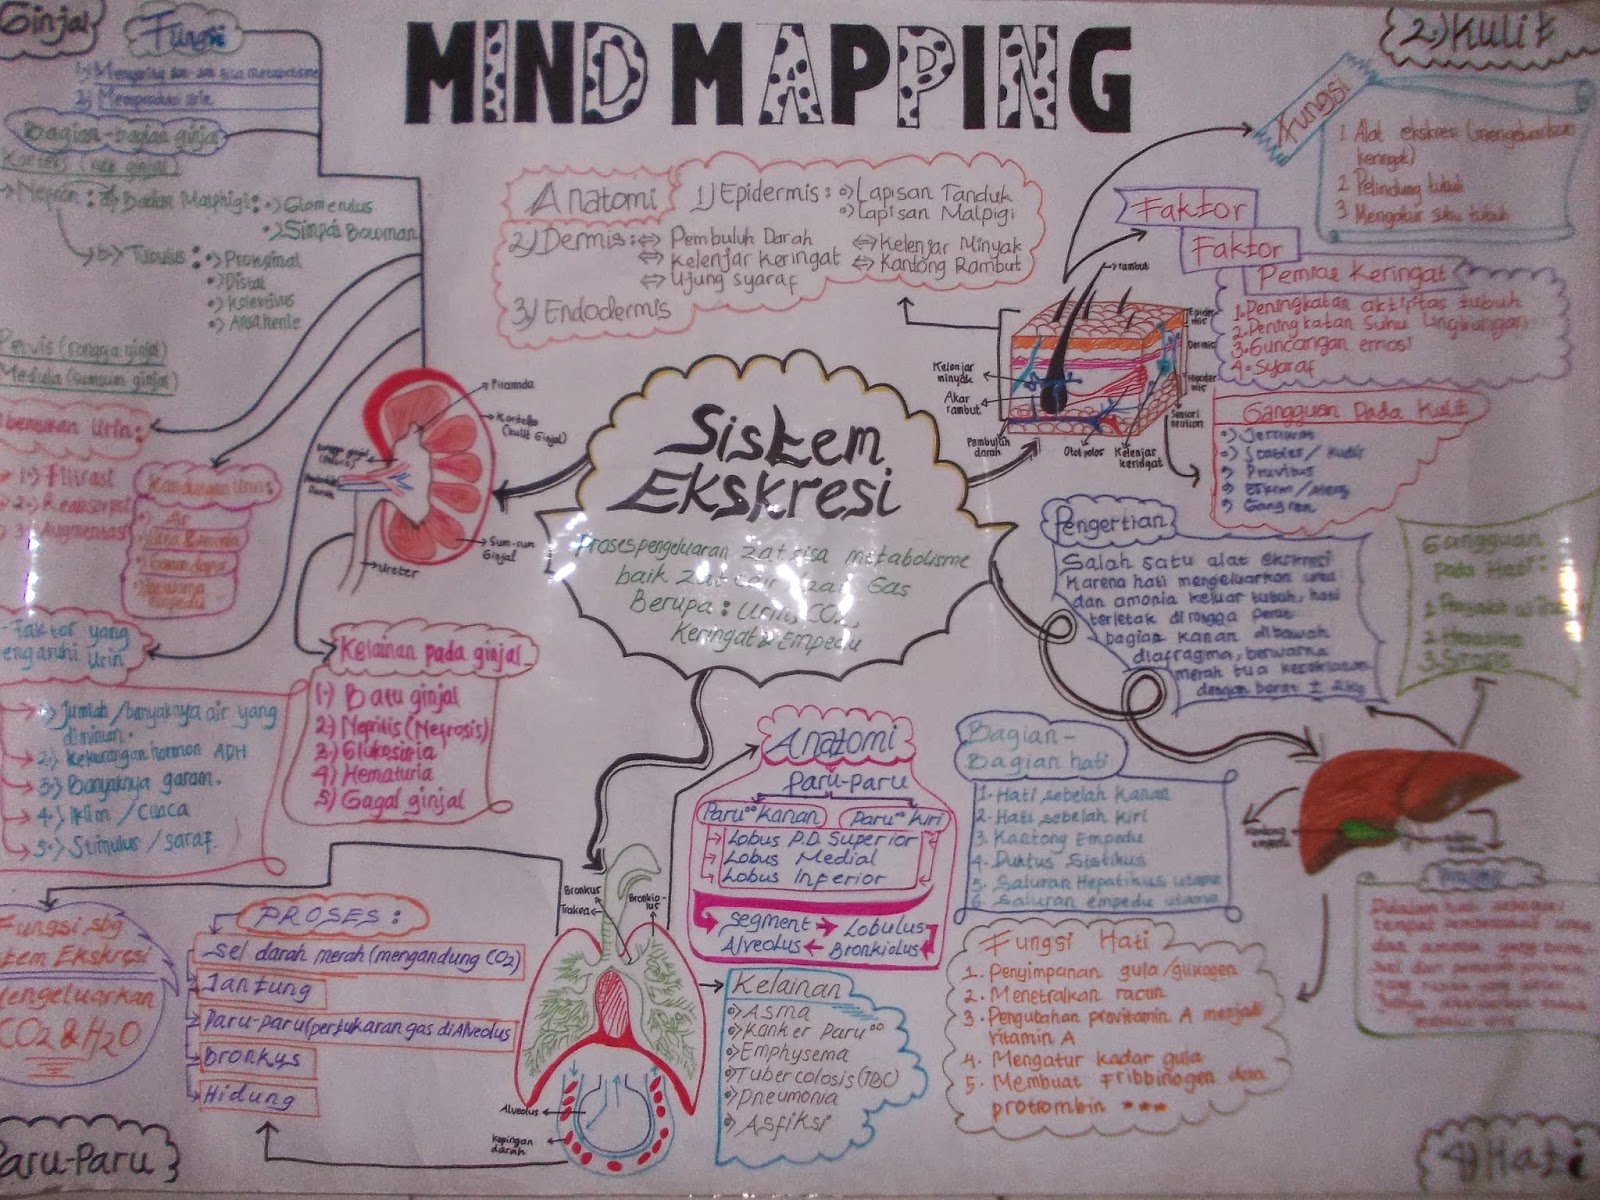 MIND MAPPING
Sistem
Ekskresi
Proses pengeluaran zat sisa metabolisme
baik zat cair zat Gas
Berupa : Urin, CO2,
Keringat & Empedu
Ginjal
Fungsi
1) Menyaring zat-zat sisa metabolisme
2) Memproduksi Urie
Bagian-badan ginjal
Korteks (kulit ginjal)
→ Nefron : a) Badan Malphigi : •> Glomerulus
•> Simpai Bowman
b> Tubulus : •> Proksimal
•> Distal
•> Kolektivus
•> Ansa henle
Pelvis (rongga ginjal)
Medula (sumsum ginjal)
bentukan Urin :
1•) Filtrasi
2•) Reabsorpsi
3•) Augmentasi
Kandungan Urin :
Air
Urea & amonia
Garam dapur
Empedu
- Faktor yang
engaruhi Urin
1•) Jumlah / banyaknya air yang
diminum.
2•) Kekurangan hormon ADH
3•) Banyaknya garam.
4•) Iklim / Cuaca
5•) Stimulus / saraf.
Piramida
Korteks
(kulit Ginjal)
Sum-sum
Ginjal
Ureter
Kelainan pada ginjal
1•) Batu ginjal
2•) Nefritis (Nefrosis)
3•) Glukosuria
4) Hematuria
5) Gagal ginjal
2•) Kulit
Fungsi
1 Alat ekskresi (mengeluarkan
keringat)
2 Pelindung tubuh
3 Mengatur suhu tubuh
Anatomi
1) Epidermis : •> Lapisan Tanduk
•> Lapisan Malpigi
2) Dermis : ⇔ Pembuluh Darah ⇔ Kelenjar Minyak
⇔ Kelenjar Keringat ⇔ Kantong Rambut
⇔ Ujung syaraf
3) Endodermis
Faktor
Faktor
Pemicu Keringat
1. Peningkatan aktifitas tubuh
2. Peningkatan Suhu Lingkungan
3. Guncangan emosi
4. Syaraf
Gangguan Pada Kulit
•) Jerawat
•) Scabies / Kudis
•) Pruvitus
•) Gangren
rambut
Epider
mis
Dermis
Kelenjar
minyak
Akar
rambut
Pembuluh
darah
Otot polos
Kelenjar
keridgat
Pengertian
Salah satu alat ekskresi
karena hati mengeluarkan urea
dan amonia keluar tubuh, hati
terletak dirongga perut
bagian kanan dibawah
diafragma, berwarna
merah tua kecoklatan
dengan berat ± 2kg
Gangguan
pada Hati :
Bagian-
Bagian hati
1. Hati sebelah kanan
2. Hati sebelah kiri
3. Kantong Empedu
4. Duktus Sistikus
5. Saluran Hepatikus utama
6. Saluran empedu utama
Kantong
empedu
Fungsi Hati
1. Penyimpanan gula / glikogen
2. Menetralkan racun
3. Pengubahan provitamin A menjadi
vitamin A
4. Mengatur kadar gula
5. Membuat Fribbinogen dan
protrombin ***
4) Hati
Anatomi
Paru-Paru
Paru°° Kanan
Paru°° Kiri
Lobus P.D. Superior
Lobus Medial
Lobus Inferior
segment → Lobulus
Alveolus ← Bronkiolus
Kelainan
•> Asma
•> Kanker Paru°°
•> Emphysema
•> Tubercolosis (TBC)
•> Pneumonia
•> Asfiksi
Bronkus
Trakea
Bronkio-
lus
Alveolus
Kepingan
darah
Fungsi sbg
tem Ekskresi
mengeluarkan
CO2 & H2O
PROSES :
Sel darah merah (mengandung CO2)
Jantung
Paru-paru (pertukaran gas di Alveolus)
Bronkus
Hidung
Paru-Paru